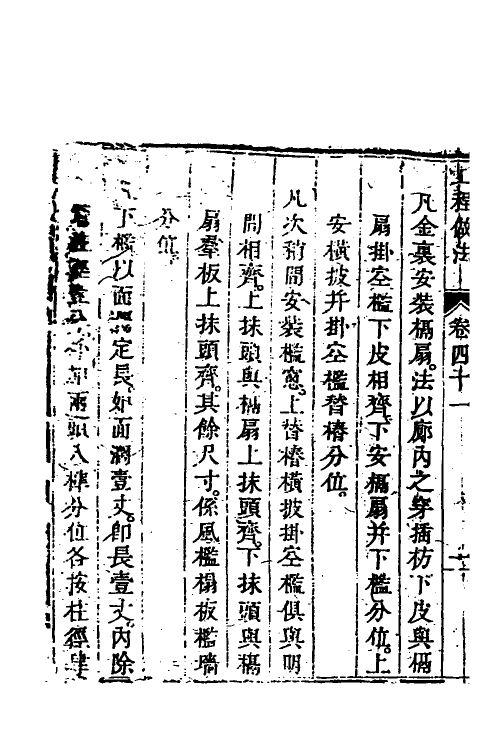 工程做法 卷四十一
凡金裏安裝槅扇。法以廊內之穿插枋下皮與槅
扇掛空檻下皮相齊。下安槅扇并下檻分位。上
安橫披并掛空檻替樁分位。
凡次稍間安裝檻窓。上替樁橫披掛空檻俱與明
間相齊。上抹頭與槅扇上抹頭齊。下抹頭與槅
扇羣板上抹頭齊。其餘尺寸。係風檻榻板檻墻
分位。
下檻以面濶定長。如面濶壹丈。卽長壹丈。內除
兩頭入榫分位各按柱徑肆